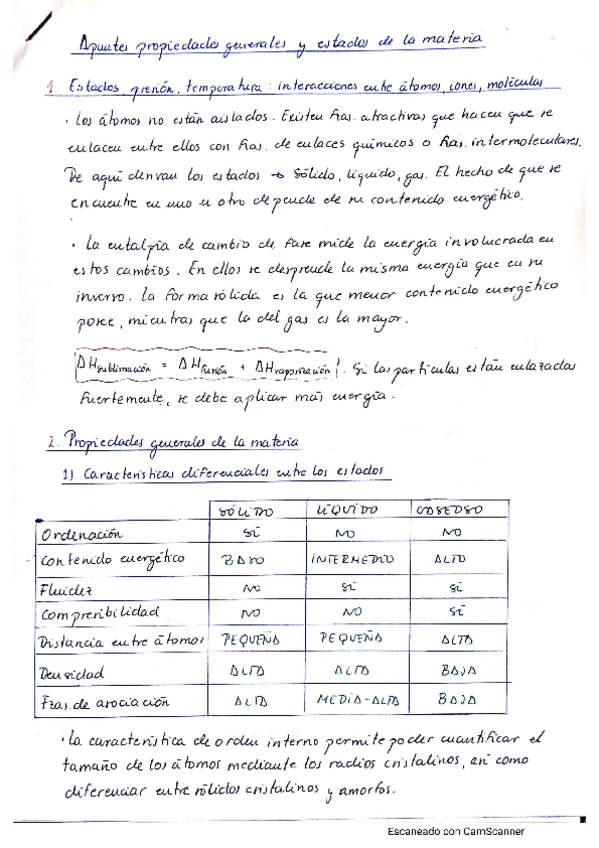 Apuntes propiedades generales y estados de la materia
1. Estados presión, temperatura: interacciones entre átomos, iones, moléculas
· Los átomos no están aislados. Existen fzas. atractivas que hacen que se
enlacen entre ellos con fzas. de enlaces químicos o fzas. intermoleculares.
De aquí derivan los estados → sólido, líquido, gas. El hecho de que se
encuentre en uno u otro depende de su contenido energético.
· La entalpía de cambio de fase mide la energía involucrada en
estos cambios. En ellos se desprende la misma energía que en su
inverso. La forma sólida es la que menor contenido energético
posee, mientras que la del gas es la mayor.
ΔHsublimación = ΔHfusión + ΔHvaporación. Si las partículas están enlazadas
fuertemente, se debe aplicar más energía.
2. Propiedades generales de la materia
1) Características diferenciales entre los estados
SÓLIDO LÍQUIDO GASEOSO
Ordenación SÍ NO NO
Contenido energético BAJO INTERMEDIO ALTO
Fluidez NO SÍ SÍ
Compresibilidad NO NO SÍ
Distancia entre átomos PEQUEÑA PEQUEÑA ALTA
Densidad ALTA ALTA BAJA
Fzas. de asociación ALTA MEDIA-ALTA BAJA
· La característica de orden interno permite poder cuantificar el
tamaño de los átomos mediante los radios cristalinos, así como
diferenciar entre sólidos cristalinos y amorfos.
Escaneado con CamScanner